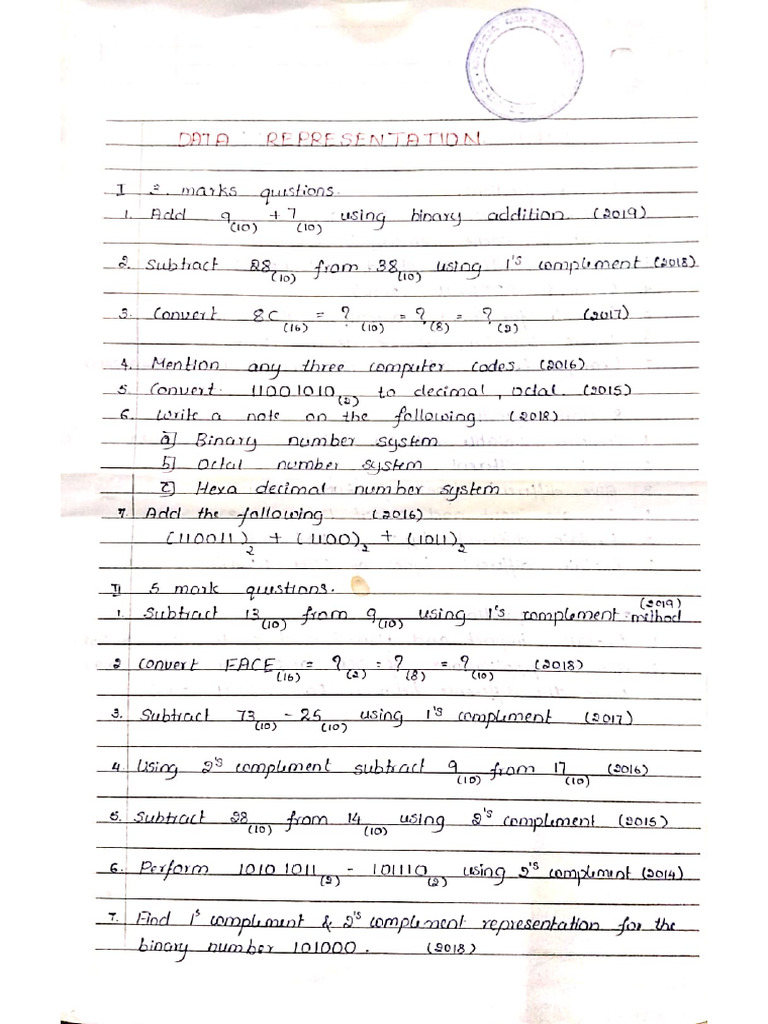 DATA REPRESENTATION
I 3. marks quistions.
1. Add 9(10) + 7(10) using binary addition. (2019)
2. Subtract 28(10) from 38(10) using 1's complement (2018)
3. Convert 8C(16) = ?(10) = ?(8) = ?(2) (2017)
4. Mention any three computer codes. (2016)
5. Convert 11001010(2) to decimal, octal. (2015)
6. Write a note on the following. (2018)
a] Binary number system
b] Octal number system
c] Hexa decimal number system
7. Add the following. (2016)
(110011)2 + (1100)2 + (1011)2
II 5 mark questions.
1. Subtract 13(10) from 9(10) using 1's complement method (2019)
2 Convert FACE(16) = ?(2) = ?(8) = ?(10) (2018)
3. Subtract 73(10) - 25(10) using 1's complement (2017)
4. Using 2's complement subtract 9(10) from 17(10) (2016)
5. Subtract 28(10) from 14(10) using 2's complement (2015)
6. Perform 1010 1011(2) - 101110(2) using 2's complement (2014)
7. Find 1's complement & 2's complement representation for the
binary number 101000. (2018)